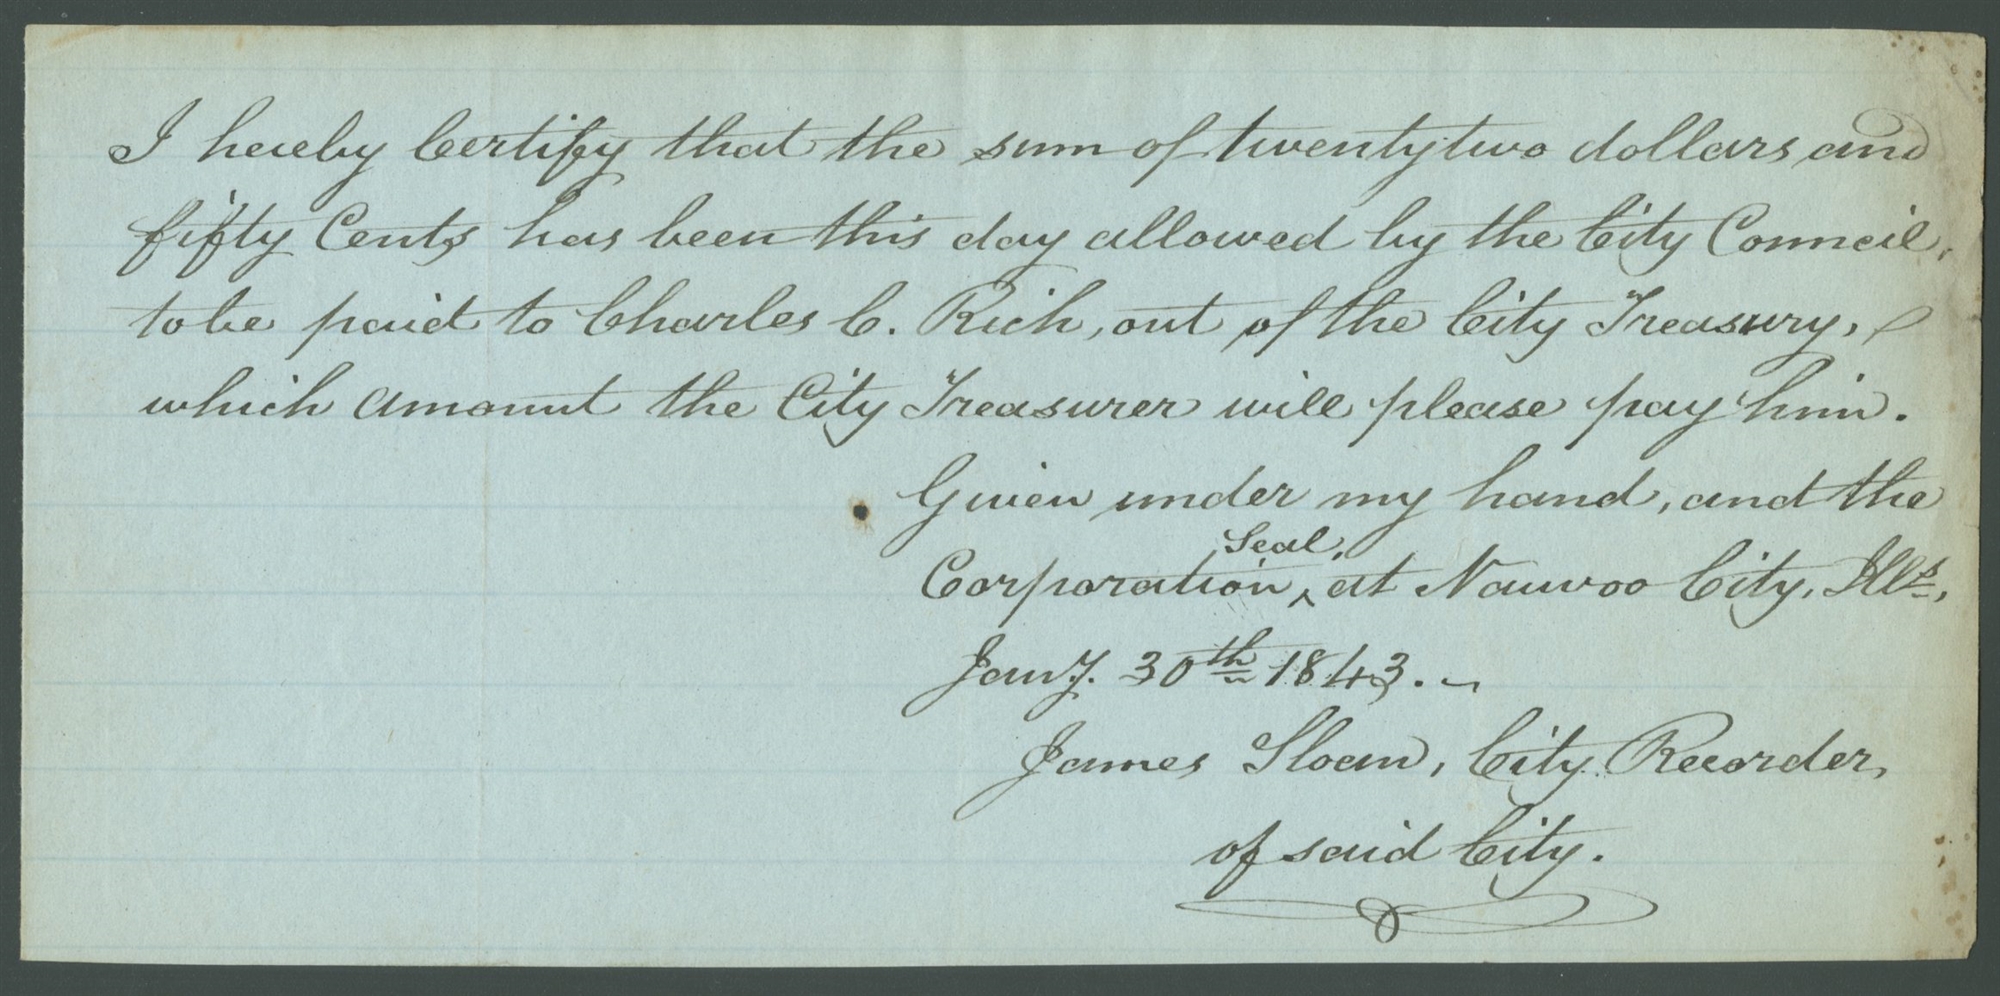 I hereby Certify that the sum of twentytwo dollars and
fifty Cents has been this day allowed by the City Council,
to be paid to Charles C. Rich, out of the City Treasury,
which amount the City Treasurer will please pay him.
Given under my hand, and the
Seal
Corporation ‸ at Nauvoo City, Ills,
Jany. 30th 1843.
James Sloan, City Recorder,
of said City.